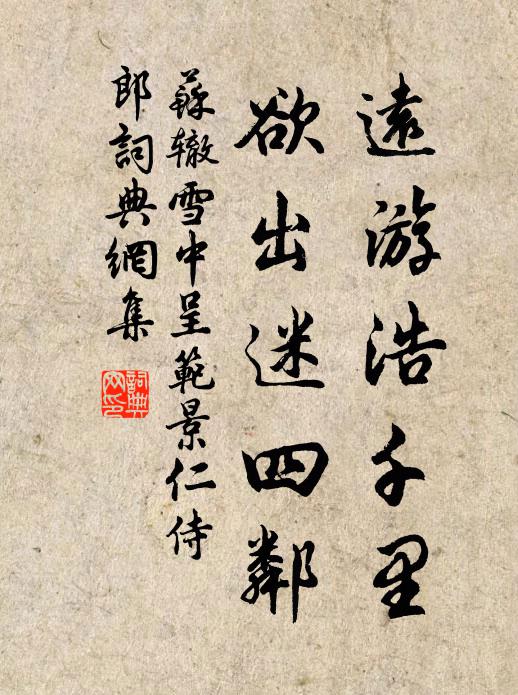 遠游浩千里
欲出迷四鄰
蘇辙雪中呈範景仁侍
郎詞典網集
詞典
网印